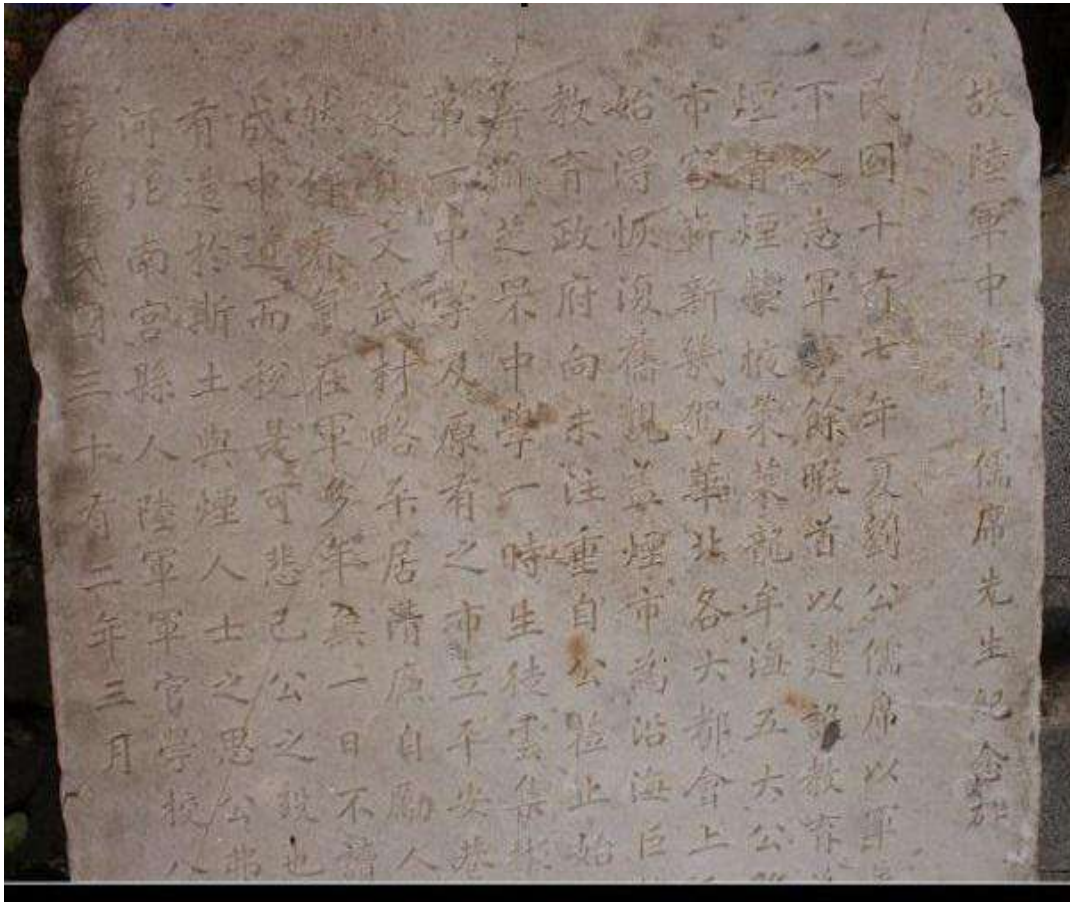 故陸軍中將劉儒席先生紀念碑
民國十有七年夏劉公儒席以軍
下之急軍事餘暇首以建設教育
埕者煙
龍牟海五大公
市容嶄新幾駕華北各大都會上
始得恢復舊觀並煙市為沿海巨
教育政府向未注重自公蒞止始
芝罘中學一時生徒雲集彬
弟一中學及原有之市立平安巷
文武材略平居清廉自勵人
在軍多年無一日不讀
成中道而 是可悲已公之 也
有造於斯土與煙人士之思公弗
河北南宮縣人陸軍軍官學校八
中華民國三十有二年三月